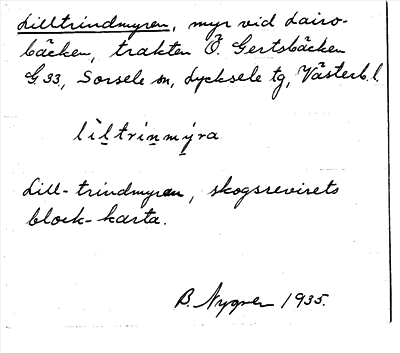 Lilltrindmyren, myr vid Lairo-
bäcken, trakten Ö. Gertsbäcken
G.33, Sorsele sn, Lycksele tg, Västerb. l.
lìl̤trin̤mý̤ra
Lill-trindmyren, skogsrevirets
block-karta.
B. Nygren 1935.